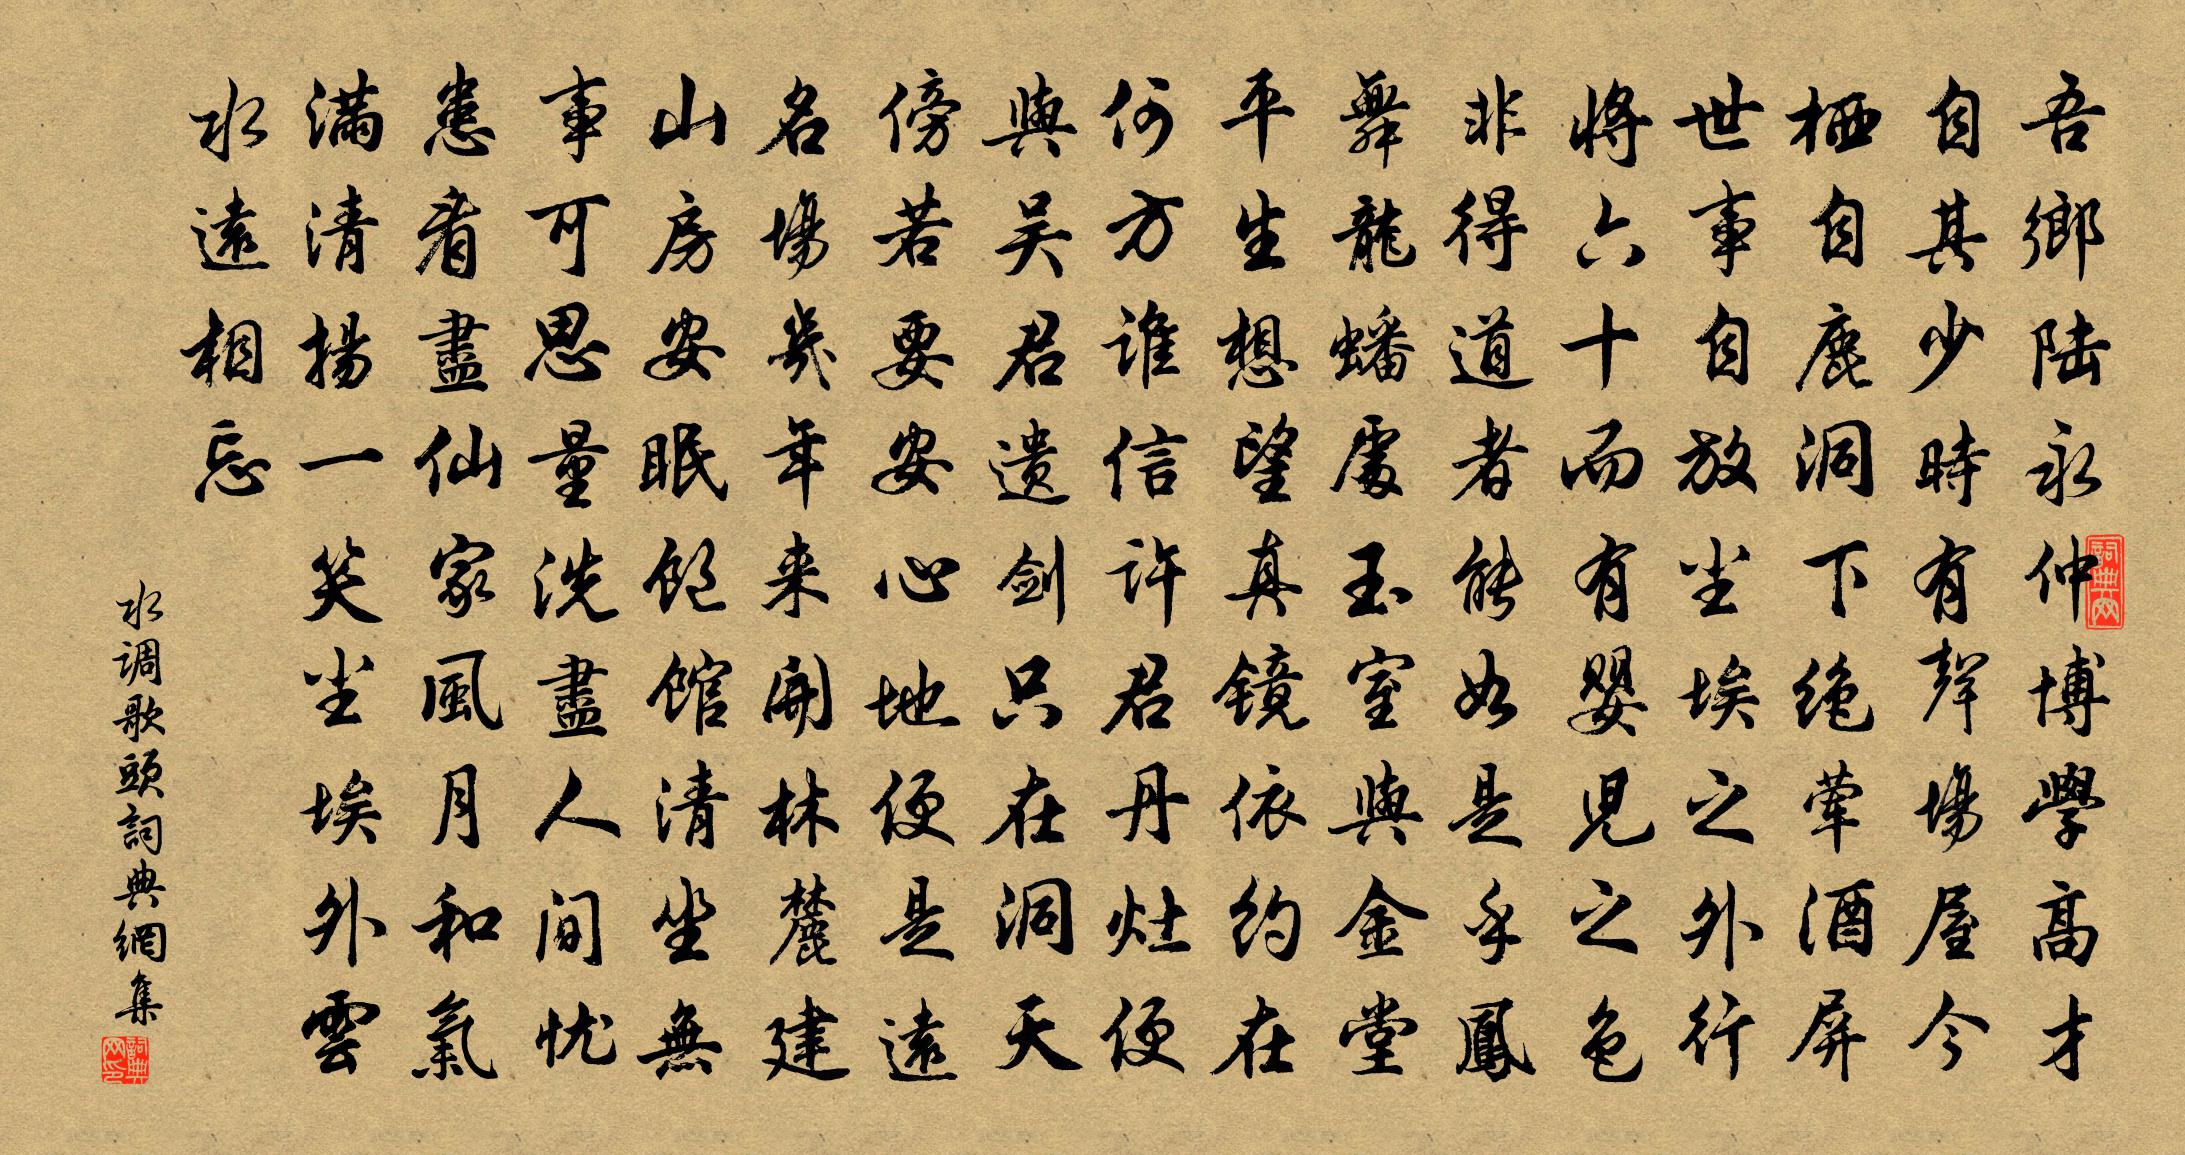 吾鄉陆永仲博學高才
自其少時有聲場屋今
栖自自鹿洞下绝荤酒屏
世事自放尘埃之外行
將六十而有婴児之色
非得道者能如是乎鳳
舞龍蟠處玉室與金堂
平生想望真镜依约在
何方谁信许君丹灶便
與吴君遗剑只在洞天
傍若要安心地便是遠
名場幾年来開林麓建
山房安眠飽馆清坐無
事可思量洗盡人间忧
患看盡仙家風月和氣
满清揚一笑尘埃外雲
水遠相忘
水调歌頭詞典網集
詞典网
詞典网印